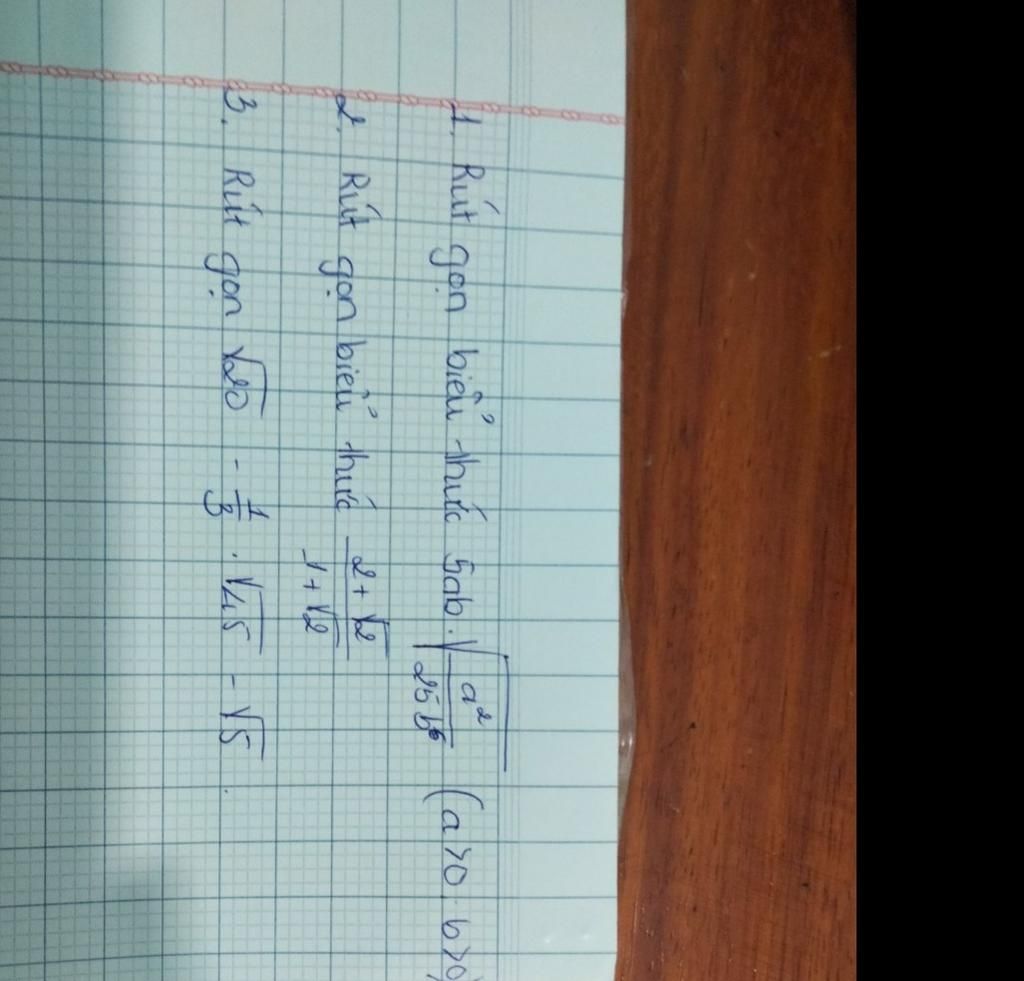 1. Rút gọn biểu thức 5ab.√(a²/25b⁶) (a>0; b>0)
2. Rút gọn biểu thức (2+√2)/(1+√2)
3. Rút gọn √20 - 1/3 . √45 - √5 .